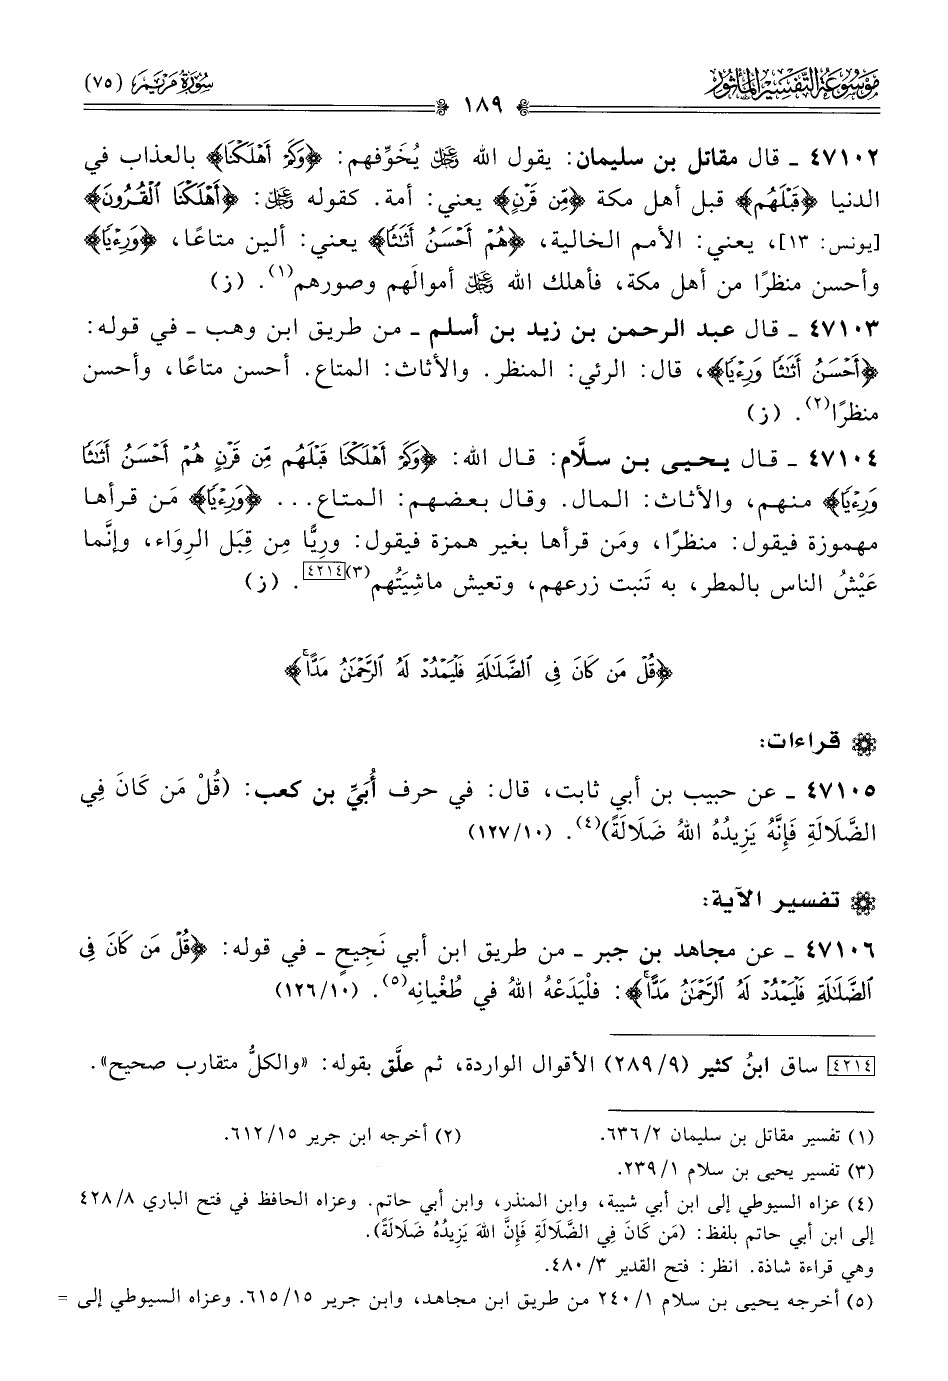 موسوعة التفسير المأثور
سورة مريم (٧٥)
١٨٩
٤٧١٠٢ ـ قال مقاتل بن سليمان: يقول الله ﷿ يُخَوِّفهم: ﴿وَكَمْ أَهْلَكْنَا﴾ بالعذاب في
الدنيا ﴿قَبْلَهُم﴾ قبل أهل مكة ﴿مِّن قَرْنٍ﴾ يعني: أمة. كقوله ﷿: ﴿أَهْلَكْنَا الْقُرُونَ﴾
[يونس: ١٣]، يعني: الأمم الخالية، ﴿هُمْ أَحْسَنُ أَثَاثًا﴾ يعني: ألين متاعًا، ﴿وَرِءْيًا﴾
وأحسن منظرًا من أهل مكة، فأهلك الله ﷿ أموالَهم وصورهم(١). (ز)
٤٧١٠٣ ـ قال عبد الرحمن بن زيد بن أسلم ـ من طريق ابن وهب ـ في قوله:
﴿أَحْسَنُ أَثَاثًا وَرِءْيًا﴾، قال: الرئي: المنظر. والأثاث: المتاع. أحسن متاعًا، وأحسن
منظرًا(٢). (ز)
٤٧١٠٤ ـ قال يحيى بن سلَّام: قال الله: ﴿وَكَمْ أَهْلَكْنَا قَبْلَهُم مِّن قَرْنٍ هُمْ أَحْسَنُ أَثَاثًا
وَرِءْيًا﴾ منهم، والأثاث: المال. وقال بعضهم: المتاع... ﴿وَرِءْيًا﴾ مَن قرأها
مهموزة فيقول: منظرًا، ومَن قرأها بغير همزة فيقول: ورِيًّا مِن قِبَل الرِواء، وإنَّما
عَيْشُ الناس بالمطر، به تَنبت زرعهم، وتعيش ماشِيَتُهم(٣)[٤٢١٤]. (ز)
﴿قُلْ مَن كَانَ فِى ٱلضَّلَـٰلَةِ فَلْيَمْدُدْ لَهُ ٱلرَّحْمَـٰنُ مَدًّا ۚ﴾
قراءات:
٤٧١٠٥ ـ عن حبيب بن أبي ثابت، قال: في حرف أُبَيِّ بن كعب: (قُلْ مَن كَانَ فِي
الضَّلَالَةِ فَإِنَّهُ يَزِيدُهُ اللهُ ضَلَالَةً)(٤). (١٠/ ١٢٧)
تفسير الآية:
٤٧١٠٦ ـ عن مجاهد بن جبر ـ من طريق ابن أبي نَجِيحٍ ـ في قوله: ﴿قُلْ مَن كَانَ فِى
ٱلضَّلَـٰلَةِ فَلْيَمْدُدْ لَهُ ٱلرَّحْمَـٰنُ مَدًّا ۚ﴾: فلْيَدَعْهُ اللهُ في طُغْيانِه(٥). (١٠/ ١٢٦)
[٤٢١٤] ساق ابنُ كثير (٩/ ٢٨٩) الأقوال الواردة، ثم علَّق بقوله: «والكلُّ متقارب صحيح».
(١) تفسير مقاتل بن سليمان ٢/ ٦٣٦.
(٢) أخرجه ابن جرير ١٥/ ٦١٢.
(٣) تفسير يحيى بن سلام ١/ ٢٣٩.
(٤) عزاه السيوطي إلى ابن أبي شيبة، وابن المنذر، وابن أبي حاتم. وعزاه الحافظ في فتح الباري ٨/ ٤٢٨
إلى ابن أبي حاتم بلفظ: (مَن كَانَ فِي الضَّلَالَةِ فَإِنَّ اللهَ يَزِيدُهُ ضَلَالَةً).
وهي قراءة شاذة. انظر: فتح القدير ٣/ ٤٨٠.
(٥) أخرجه يحيى بن سلام ١/ ٢٤٠ من طريق ابن مجاهد، وابن جرير ١٥/ ٦١٥. وعزاه السيوطي إلى =